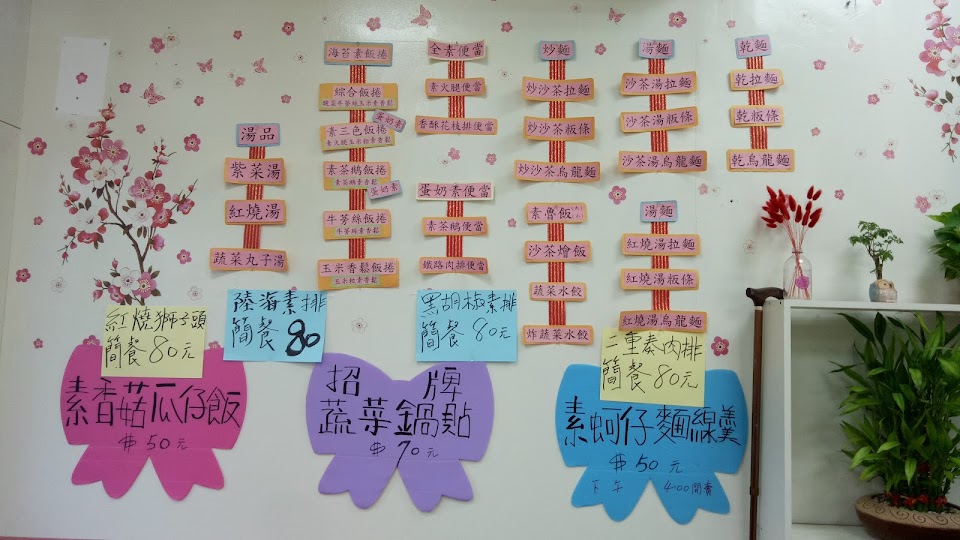 湯品
紫菜湯
紅燒湯
蔬菜丸子湯
海苔素飯捲
綜合飯捲
蔬菜牛蒡絲玉米素香鬆
蛋奶素
素三色飯捲
素火腿玉米粒素香鬆
素茶鵝飯捲
素茶鵝素香鬆
蛋奶素
牛蒡絲飯捲
牛蒡絲素香鬆
玉米香鬆飯捲
玉米粒素香鬆
全素便當
素火腿便當
香酥花枝排便當
蛋奶素便當
素茶鵝便當
鐵路肉排便當
炒麵
炒沙茶拉麵
炒沙茶板條
炒沙茶烏龍麵
素魯飯
沙茶燴飯
蔬菜水餃
炸蔬菜水餃
湯麵
沙茶湯拉麵
沙茶湯板條
沙茶湯烏龍麵
湯麵
紅燒湯拉麵
紅燒湯板條
紅燒湯烏龍麵
乾麵
乾拉麵
乾板條
乾烏龍麵
紅燒獅子頭
簡餐80元
陸海素排
簡餐80
黑胡椒素排
簡餐80元
二重素肉排
簡餐80元
素香菇瓜仔飯
$50元
招牌
蔬菜鍋貼
$70元
素蚵仔麵線羹
$50元
下午 4:00開賣